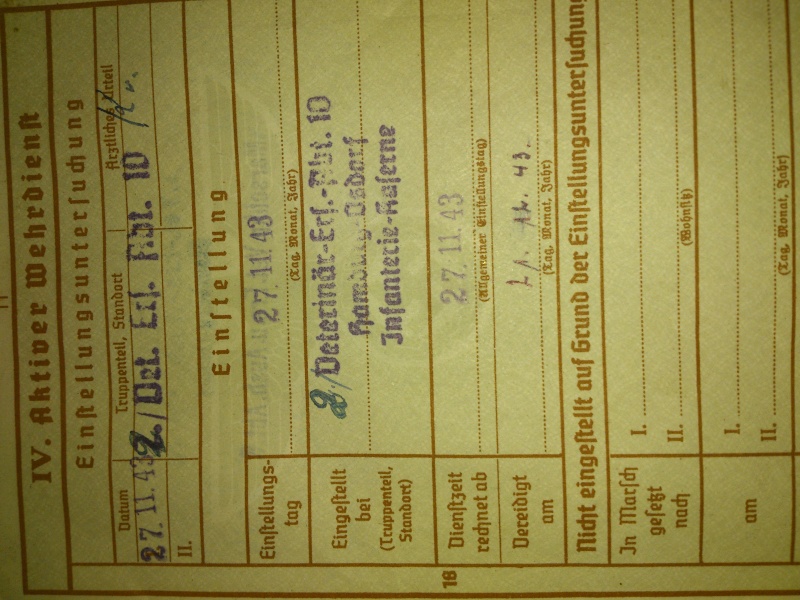 IV. Aktiver Wehrdienst
Einstellungsuntersuchung
Datum
Truppenteil, Standort
Ärztliches Urteil
27.11.43
2./Vet. Ers. Abt. 10
kv.
II.
Einstellung
Einstellungs-
tag
27.11.43
(Tag, Monat, Jahr)
Eingestellt
bei
(Truppenteil,
Standort)
2/Veterinär-Ers.-Abt. 10
Hamburg-Osdorf
Infanterie-Kaserne
Dienstzeit
rechnet ab
27.11.43
(Allgemeiner Einstellungstag)
Vereidigt
am
12. 43.
(Tag, Monat, Jahr)
Nicht eingestellt auf Grund der Einstellungsuntersuchung
In Marsch
gesetzt
nach
I.
II.
(Wohnsitz)
am
I.
II.
(Tag, Monat, Jahr)
18